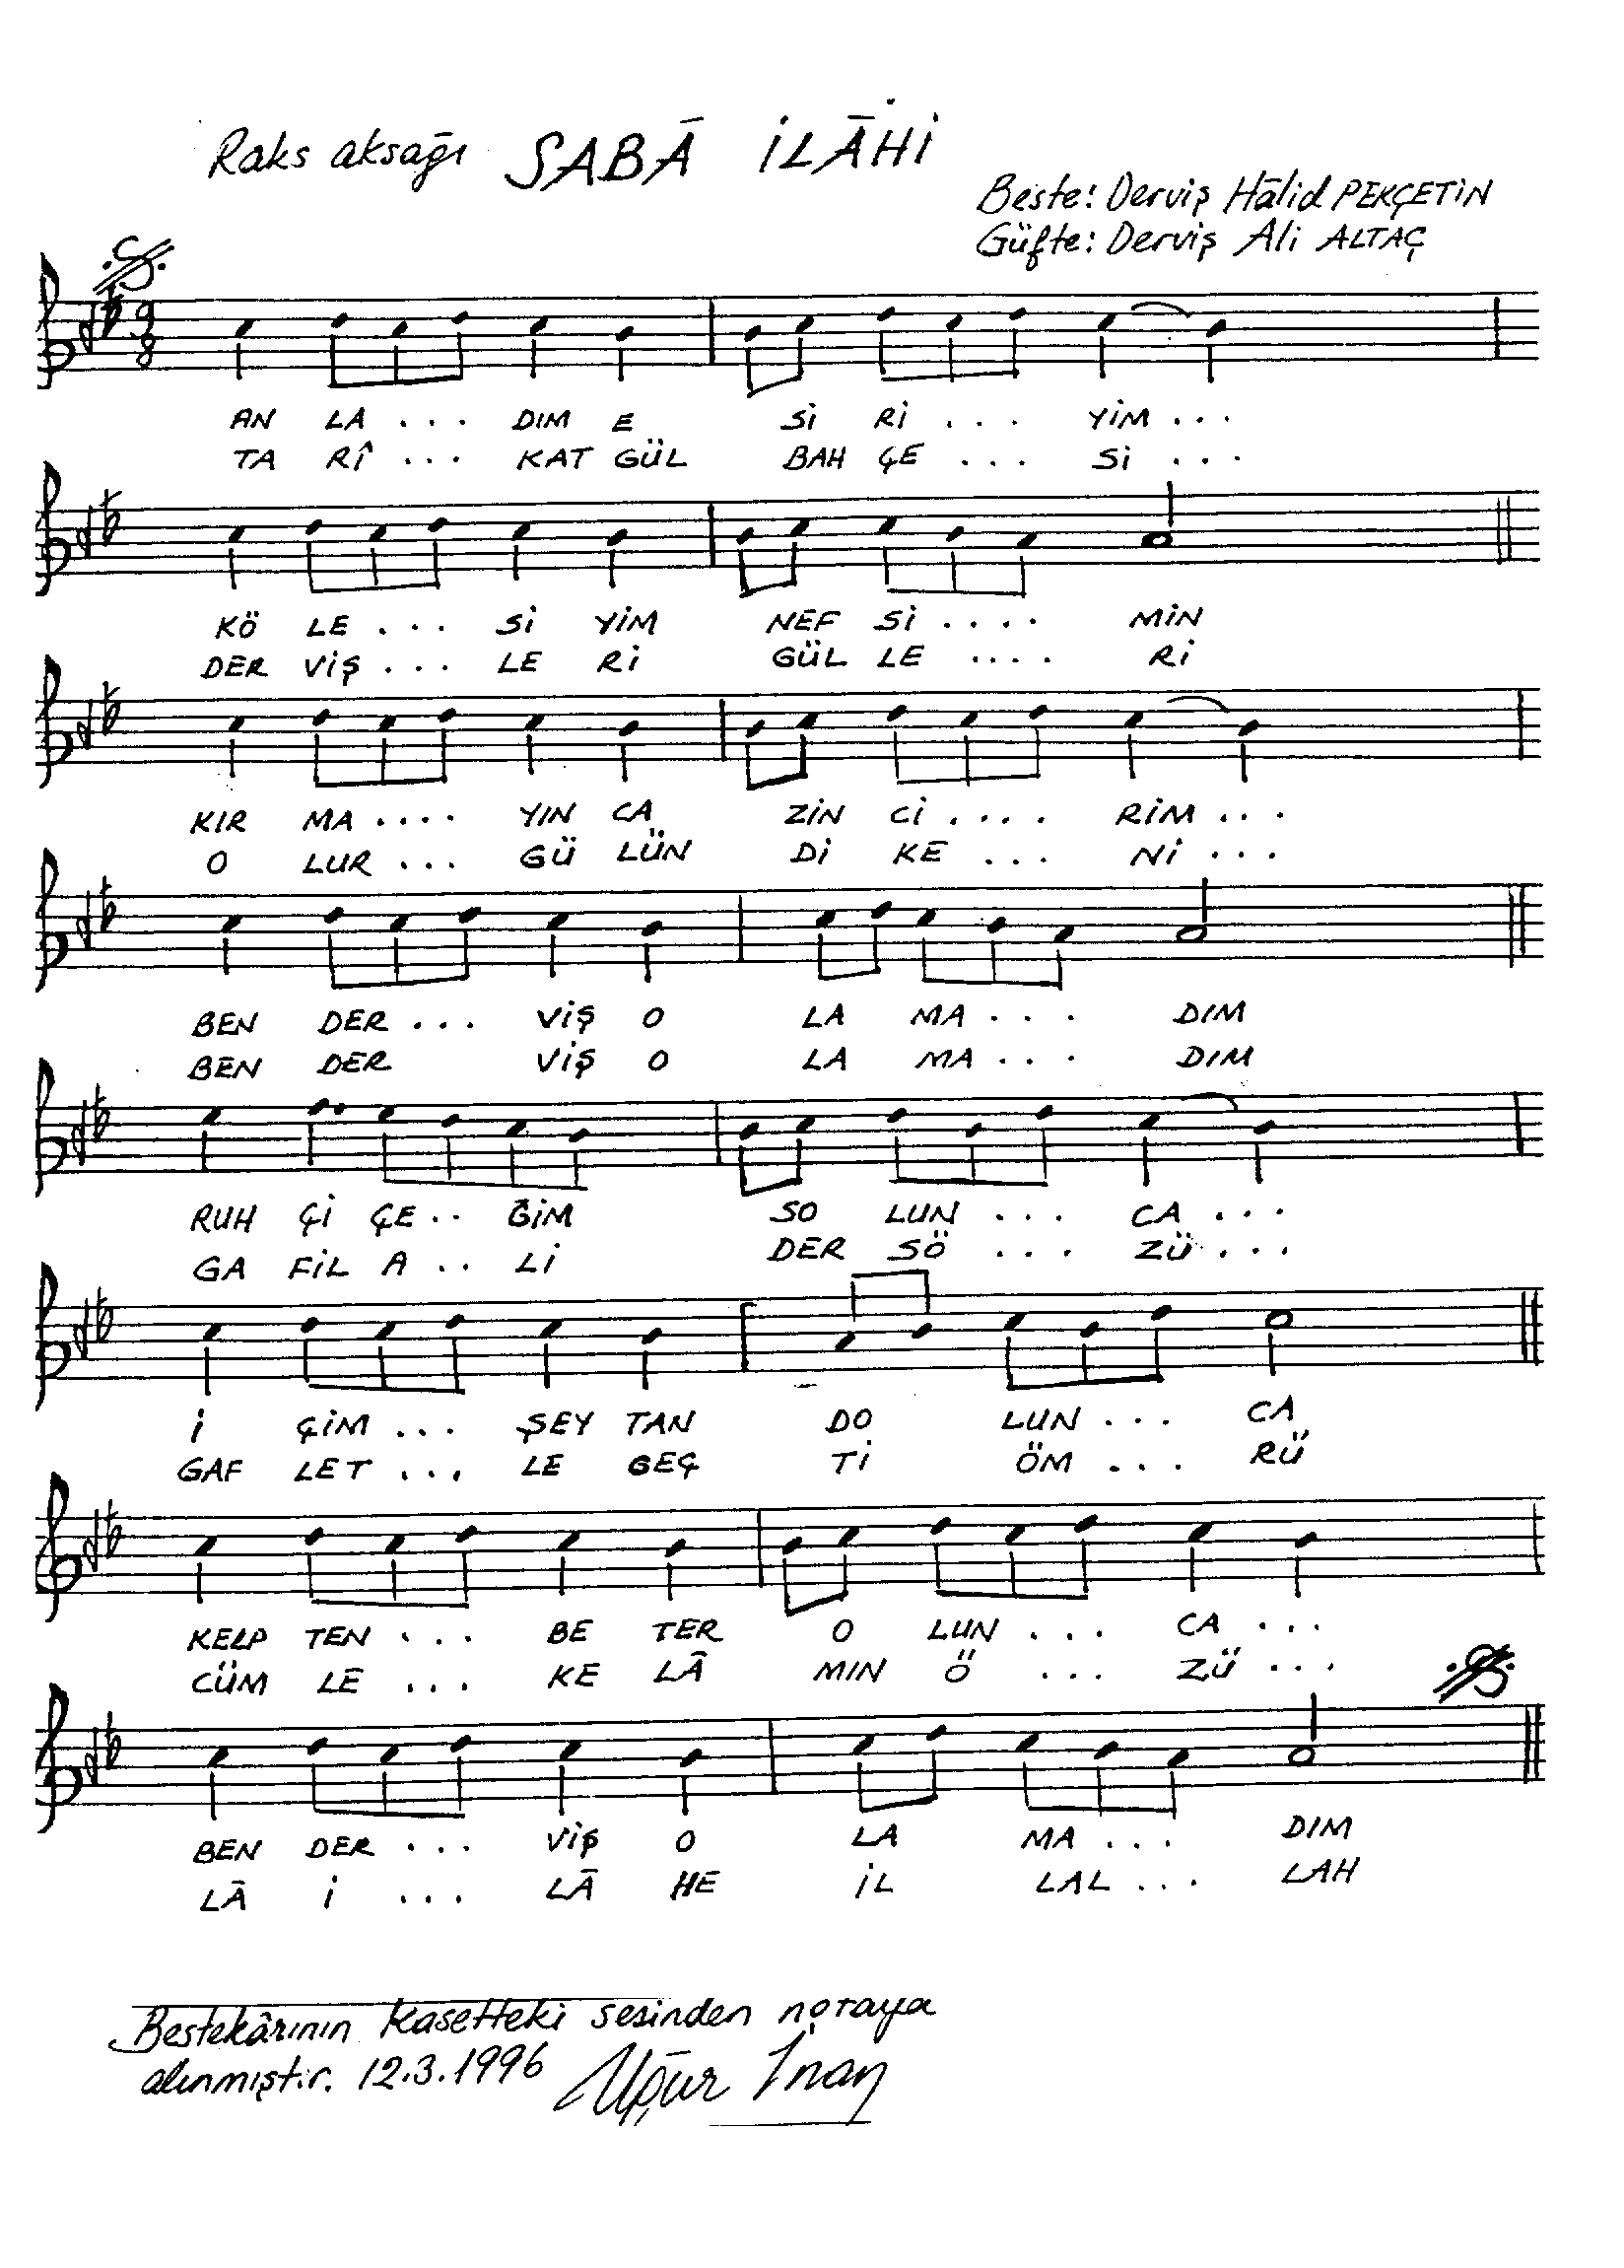 Raks aksağı SABĀ İLĀHİ
Beste: Derviş Hālid PEKÇETİN
Güfte: Derviş Ali ALTAÇ
9
8
AN LA ... DIM E Sİ Rİ ... YİM ...
TA RÎ ... KAT GÜL BAH ÇE ... Sİ ...
KÖ LE ... Sİ YİM NEF Sİ .... MİN
DER VİŞ ... LE Rİ GÜL LE .... Rİ
KIR MA .... YIN CA ZİN Cİ .... RİM ...
O LUR ... GÜ LÜN Dİ KE ... Nİ ...
BEN DER ... VİŞ O LA MA ... DIM
BEN DER VİŞ O LA MA ... DIM
RUH Çİ ÇE .. ĞİM SO LUN ... CA ...
GA FİL A .. Lİ DER SÖ ... ZÜ ...
İ ÇİM ... ŞEY TAN DO LUN ... CA
GAF LET ... LE GEÇ Tİ ÖM ... RÜ
KELP TEN ... BE TER O LUN ... CA ...
CÜM LE ... KE LĀ MIN Ö ... ZÜ ...
BEN DER ... VİŞ O LA MA ... DIM
LĀ İ ... LĀ HE İL LAL ... LAH
Bestekârının kasetteki sesinden notaya
alınmıştır. 12.3.1996 Uğur İnan